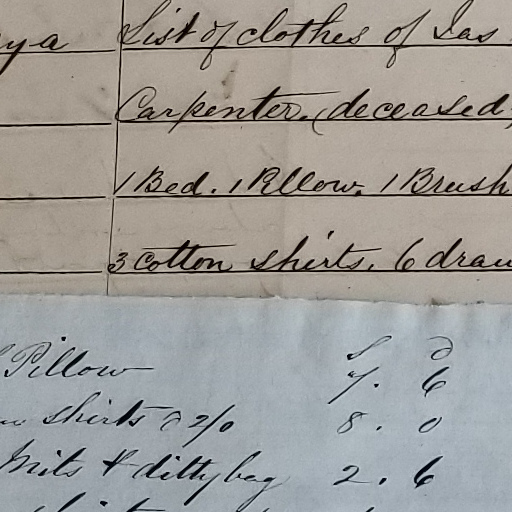 ya List of clothes of Jas
Carpenter. (deceased)
1 Bed. 1 Pillow. 1 Brush
3 cotton shirts. 6 draw
S D
Pillow 7. 6
shirts @ 2/0 8. 0
Mits & ditty bag 2. 6